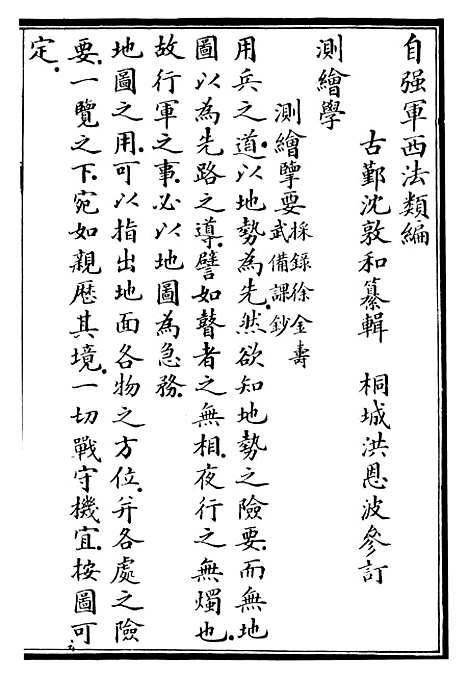 自强軍西法類編
古鄞沈敦和纂輯　桐城洪恩波參訂
測繪學
測繪摯要採錄徐金壽武備課鈔
用兵之道.以地勢為先.然欲知地勢之險要.而無地
圖以為先路之導.譬如瞽者之無相.夜行之無燭也.
故行軍之事.必以地圖為急務.
地圖之用.可以指出地面各物之方位.并各處之險
要.一覽之下.宛如親歷其境.一切戰守機宜.按圖可
定.